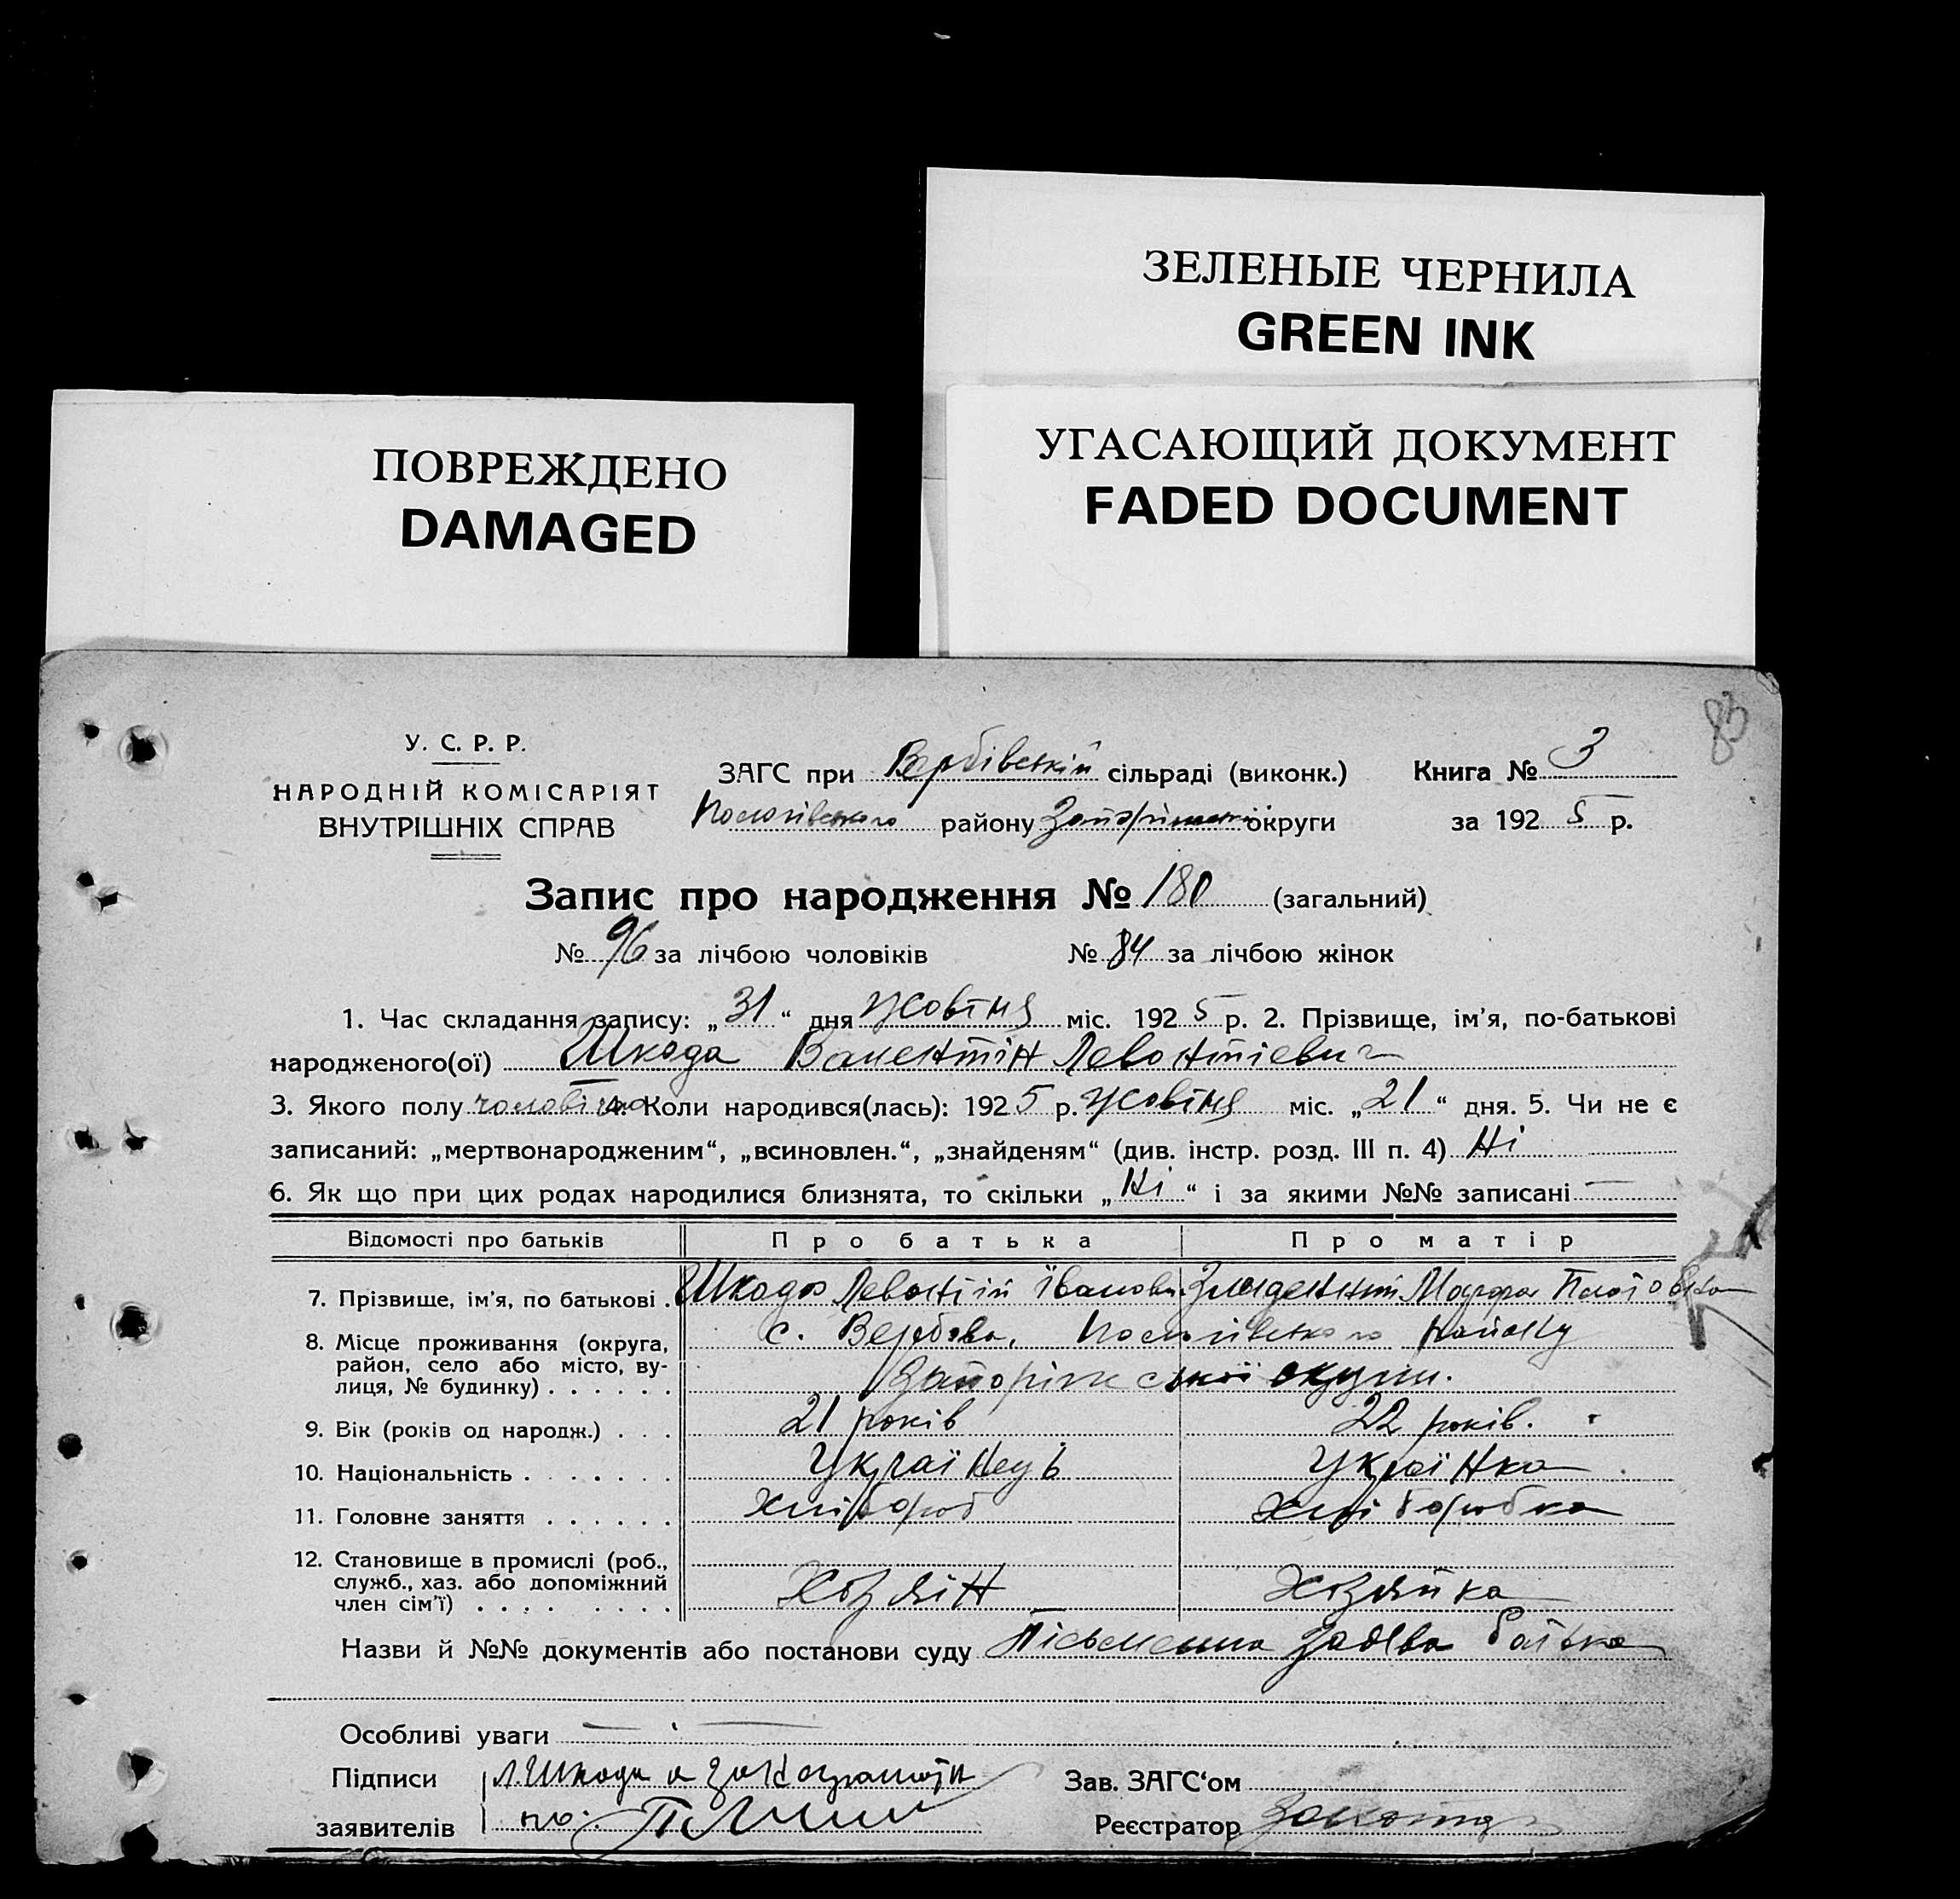 ЗЕЛЕНЫЕ ЧЕРНИЛА
GREEN INK
УГАСАЮЩИЙ ДОКУМЕНТ
FADED DOCUMENT
ПОВРЕЖДЕНО
DAMAGED
83
У. С. Р. Р.
НАРОДНІЙ КОМІСАРІЯТ
ВНУТРІШНІХ СПРАВ
ЗАГС при Вербівській сільраді (виконк.) Книга № 3
Пологівського району Запоріжської округи за 1925 р.
Запис про народження № 180 (загальний)
№ 96 за лічбою чоловіків № 84 за лічбою жінок
1. Час складання запису: „31“ дня жовтня міс. 1925 р. 2. Прізвище, ім’я, по-батькові
народженого(ої) Шкода Валентін Левонтіевич
3. Якого полу чоловічого 4. Коли народився(лась): 1925 р. жовтня міс. „21“ дня. 5. Чи не є
записаний: „мертвонародженим“, „всиновлен.“, „знайденям“ (див. інстр. розд. III п. 4) Ні
6. Як що при цих родах народилися близнята, то скільки „Ні“ і за якими №№ записані —
Відомості про батьків Про батька Про матір
7. Прізвище, ім’я, по батькові . Шкода Левонтій Іванови. Мотря
8. Місце проживання (округа, с. Вербова, Пологівського району
район, село або місто, ву-
лиця, № будинку) . . . . . . Запоріжської округи.
9. Вік (років од народж.) . . . 21 років 22 років.
10. Національність . . . . . . . Українець Українка
11. Головне заняття . . . . . . Хлібороб Хліборобка
12. Становище в промислі (роб.,
служб., хаз. або допоміжний Хозяін Хозяйка
член сім’ї) . . . . . . . .
Назви й №№ документів або постанови суду Пісьменна заява батька
Особливі уваги —
Підписи Л. Шкода а за неграмотн
заявителів по:
Зав. ЗАГС‘ом
Реєстратор